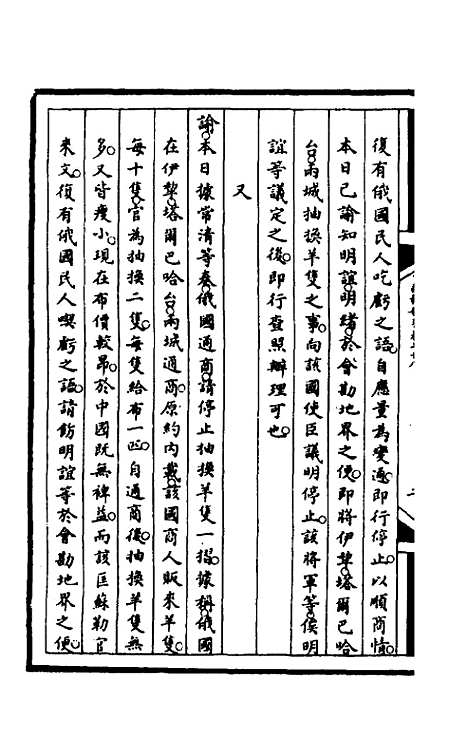 復有俄國民人吃虧之語。自應量為變通。即行停止。以順商情。
本日已諭知明誼明緒。於會勘地界之便。即將伊犂。塔爾巴哈
台。兩城抽換羊隻之事。向該國使臣議明停止。該將軍等。俟明
誼等議定之後。即行查照辦理可也。
又
諭。本日據常清等奏。俄國通商。請停止抽換羊隻一摺。據稱。俄國
在伊犂。塔爾巴哈台。兩城通商。原約內載。該國商人販來羊隻。
每十隻。官為抽換二隻。每隻給布一疋。自通商後。抽換羊隻無
多。又皆瘦小。現在布價較昂。於中國既無裨益。而該匡蘇勒官
來文。復有俄國民人喫虧之語。請飭明誼等於會勘地界之便。